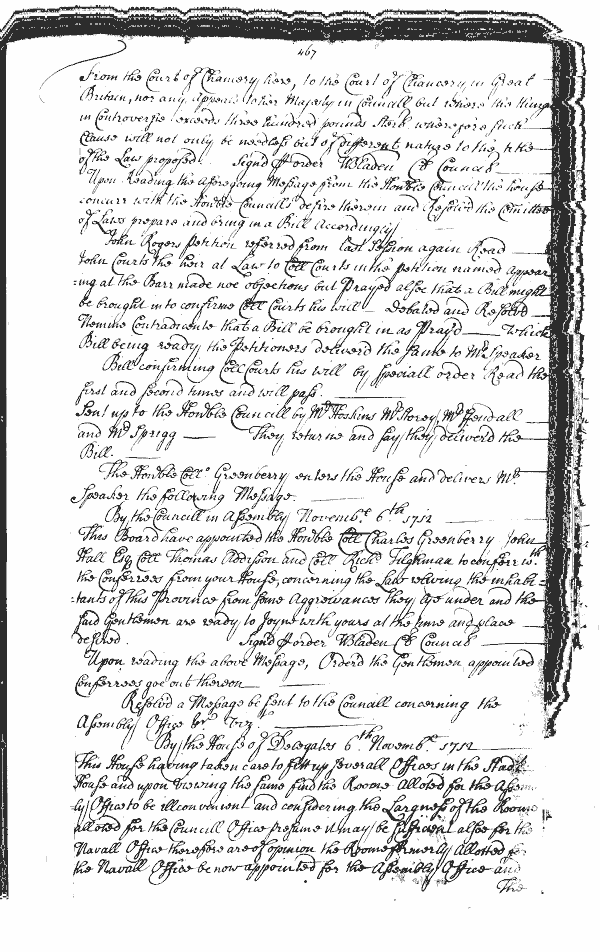 467
From the Court of Chancery here, to the Court of Chancery in Great
Britain, nor any Appeals to her Majesty in Councill but where the thing
in Controversie exceeds three hundred pounds Sterl wherefore such
Clause will not only be needless but of different nature to the title
of the Law proposed. Signd p order WBladen Cl Councll
Upon Reading the Aforegoing Message from the Honble Councill the house
concurr with the Honble Councills desire therein and Resolved the Comittee
of Laws prepare and bring in a Bill Accordingly
John Rogers Petition referred from last Session again Read
John Courts the heir at Law to Coll Courts in the petition named Appear
:ing at the Barr made noe objections but Prayed alsoe that a Bill might
be brought in to confirme Coll Courts his will Debated and Resolvd
Nemine Contradicente that a Bill be brought in as Prayd Which
Bill being ready the Petitioners deliverd the same to Mr Speaker
Bill confirming Coll Courts his will by speciall order Read the
first and second times and will pass.
Sent up to the Honble Councill by Mr Hoskins Mr Storey Mr Kendall
and Mr Sprigg They returne and say they deliverd the
Bill.
The Honble Collo Greenberry enters the House and delivers Mr
Speaker the following Message.
By the Councill in Assembly Novembr 6th 1712
This Board have appointed the Honble Coll Charles Greenberry John
Hall Esq Coll Thomas Addison and Coll Richd Tilghman to conferr wth
the Conferrees from your House, concerning the Law releiving the inhabi=
:tants of this Province from some Aggreivances they lye under and the
said Gentlemen are ready to Joyne with yours at the time and place
desired. Signd p order WBladen Cl Councll
Upon reading the above Message, Orderd the Gentlemen appointed
Conferrees goe out thereon
Resolvd a Message be sent to the Councill concerning the
Assembly Office
By the House of Delegates 6th Novembr 1712
This House having taken care to fitt up severall Offices in the Stadt
House and upon viewing the same find the Roome Alloted for the Assem
ly Office to be illconvenient and considering the Largness of the Roome
alloted for the Councill Office presume it may be sufficient alsoe for the
Navall Office therefore are of opinion the Roome formerly Allotted for
the Navall Office be now appointed for the Assembly Office and
The